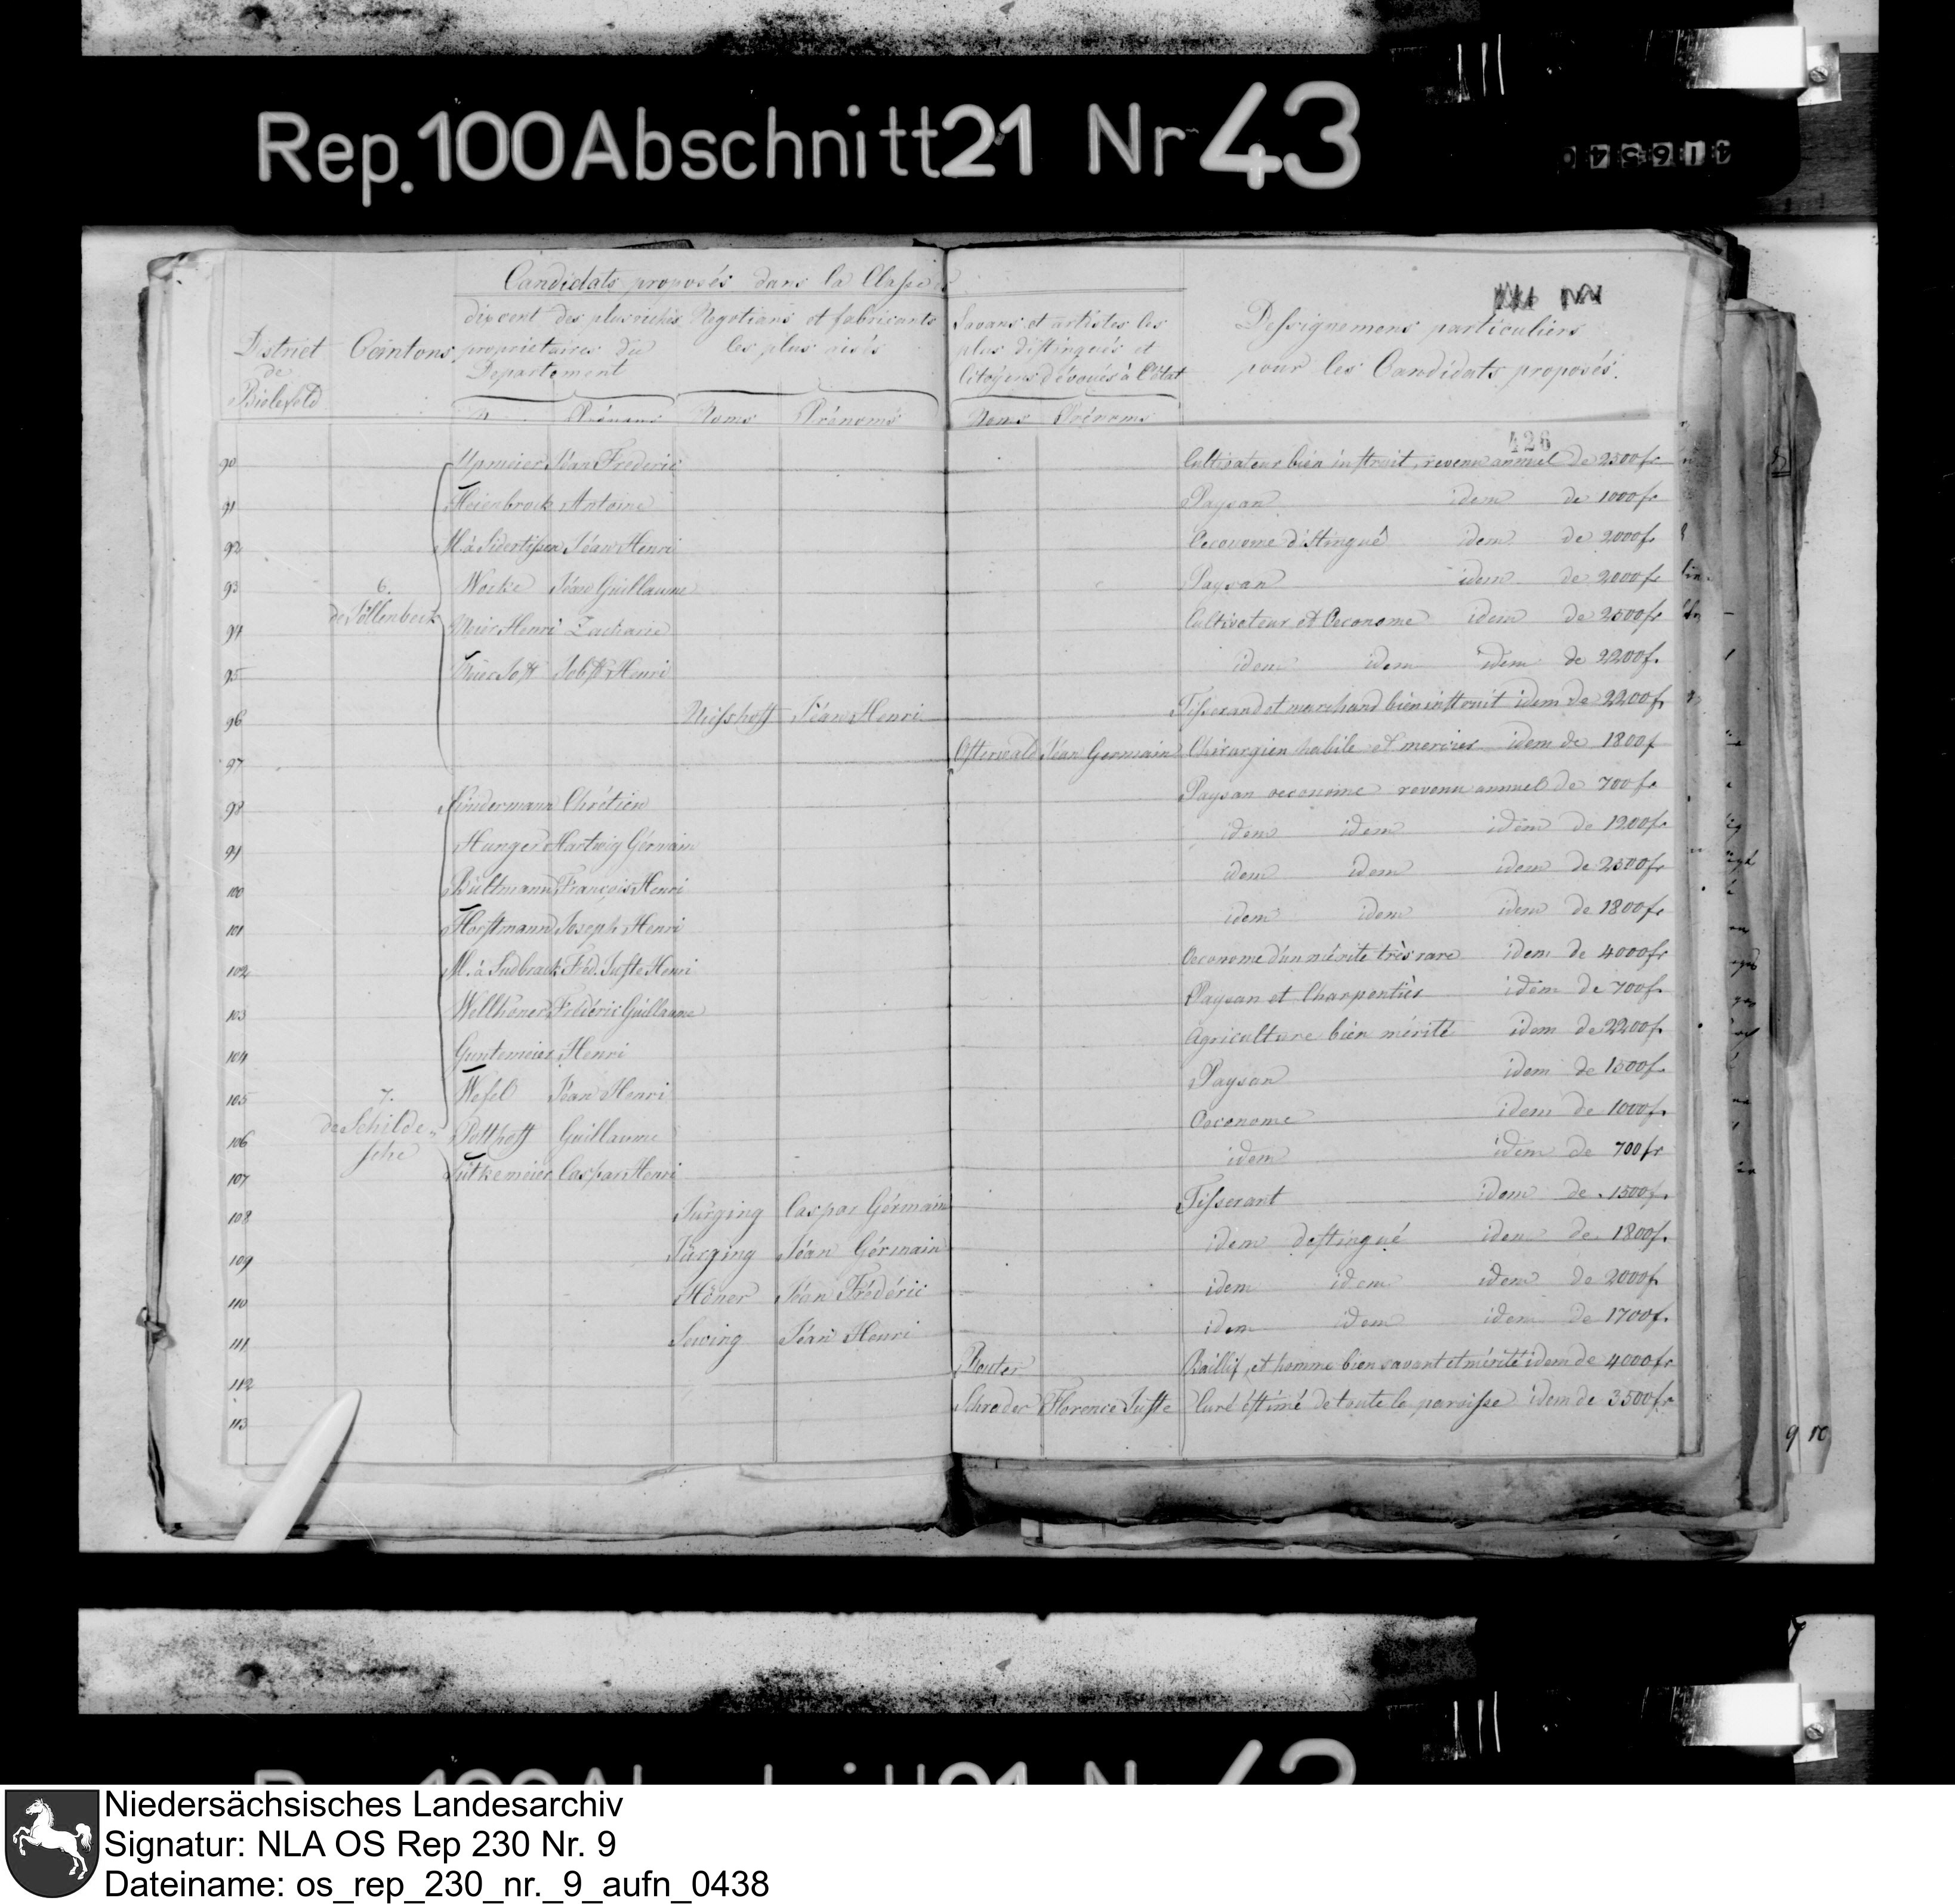 Rep. 100 Abschnitt 21 Nr 43
Candidats proposés dans la Classe
District de Bielefeld
Cantons
dix cent des plus riches propriétaires du Departement
Negotians et fabricants les plus aisés
Savans et artistes les plus distingués et Citoyens dévoués à l'état
Dessignemens particuliers pour les Candidats proposés.
Prénoms Noms Prénoms Noms Prénoms
426
90 Upmeier Jéan Frederic Cultivateur bien instruit, revenu annuel de 2500 fr
91 Heienbrock Antoine Paysan idem de 1000 fr
92 M. à Siderdissen Jéan Henri Oeconome distingué idem de 2000 fr
93 Worke Jéan Guillaume Paysan idem de 2000 fr
6. de Jöllenbeck
94 Meier Henri Zacharie Cultivateur et Oeconome idem de 2500 fr
95 Jobst Henri idem idem idem de 2200 f.
96 Jéan Henri Tisserand et marchand bien instruit idem de 2200 f.
97 Osterwald Jéan Germain Chirurgien habile et mercier idem de 1800 f
98 Lindermann Chrétien Paysan oeconome revenu annuel de 700 fr
99 Hunger Hartwig Gérmain idem idem idem de 1200 fr
100 Bültmann François Henri idem idem idem de 2500 fr
101 Horstmann Joseph Henri idem idem idem de 1800 fr
102 M. à Sudbrack Fréd. Juste Henri Oeconome d'un mérite très rare idem de 4000 fr
103 Wellhöner Fréderic Guillaume Paysan et Charpentier idem de 700 f.
104 Guntemeier Henri Agriculture bien mérité idem de 2200 f.
105 Wefel Jéan Henri Paysan idem de 1500 f.
7. de Schilde-sche
106 Potthoff Guillaume Oeconome idem de 1000 f.
107 Lütkemeier Caspar Henri idem idem de 700 fr
108 Jürging Caspar Gérmain Tisserant idem de 1500 f.
109 Jürging Jéan Gérmain idem destingué idem de 1800 f.
110 Höner Jéan Frédéric idem idem idem de 2000 f.
111 Sewing Jéan Henri idem idem idem de 1700 f.
112 Reuter Baillif, et homme bien savant et mérité idem de 4000 fr
113 Schrader Florence Juste Curé éstimé de toute la paroisse idem de 3500 fr
9 10
Niedersächsisches Landesarchiv
Signatur: NLA OS Rep 230 Nr. 9
Dateiname: os_rep_230_nr._9_aufn_0438